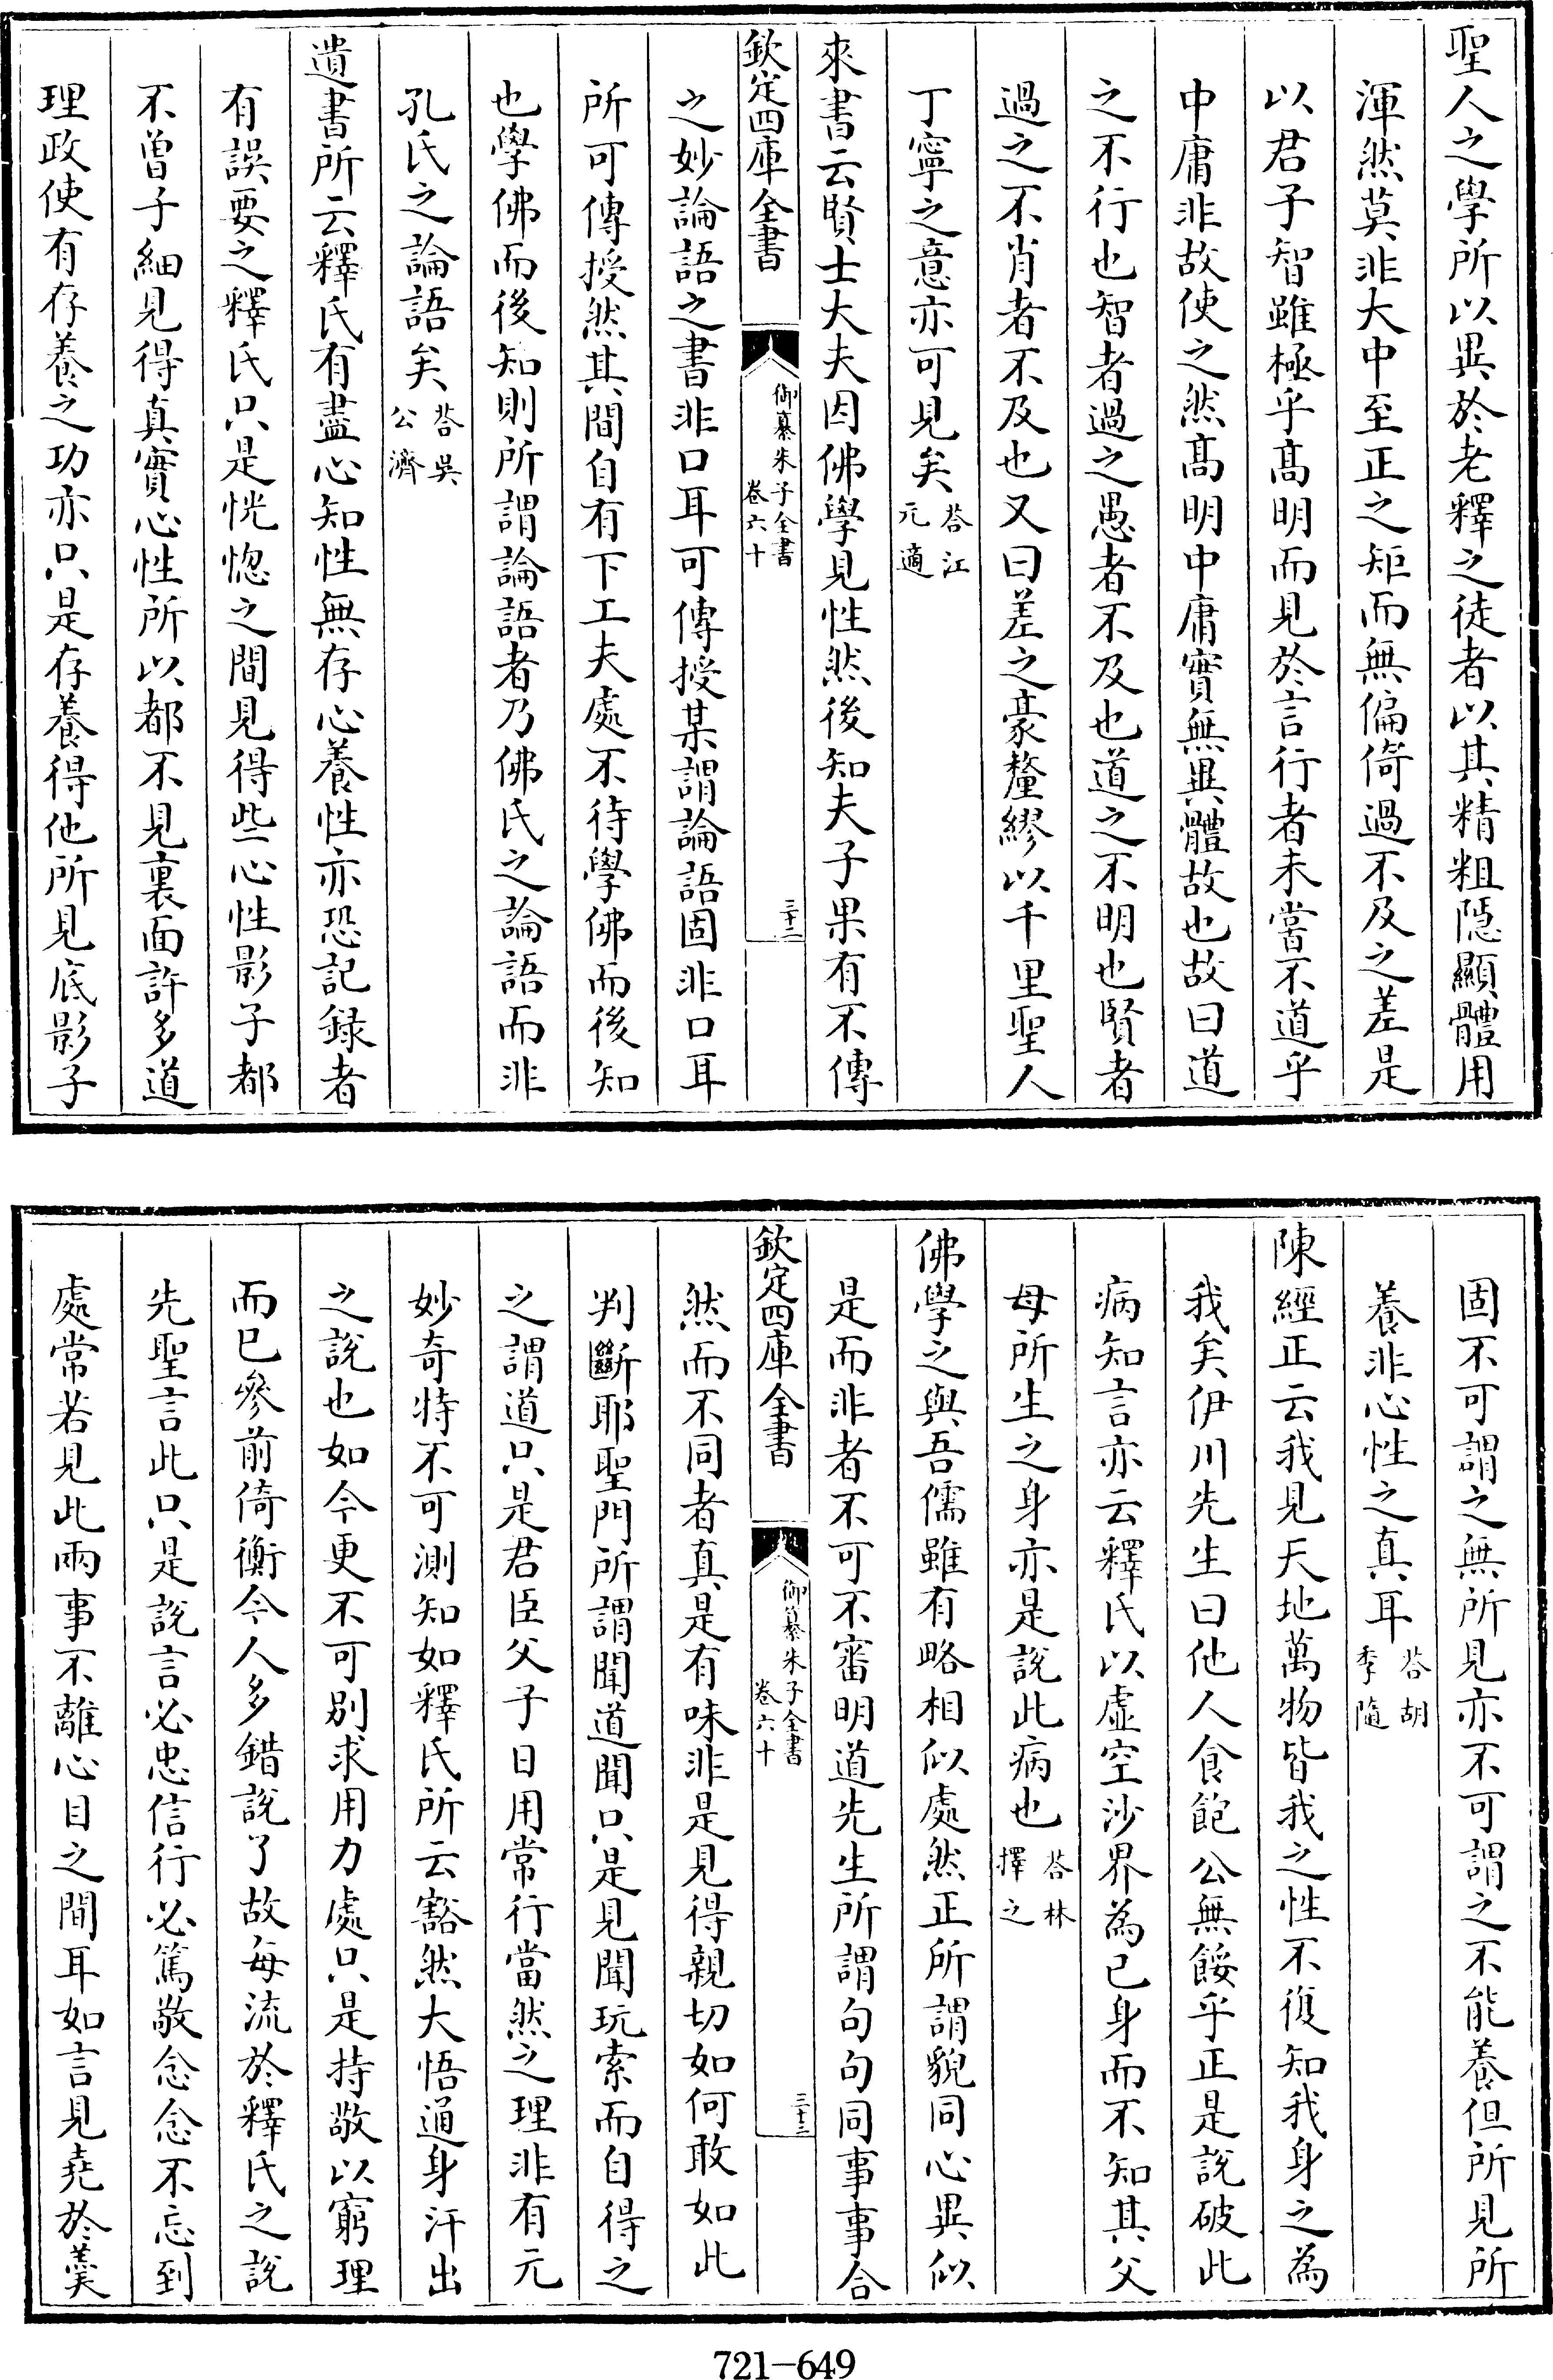 聖人之學所以異於老釋之徒者以其精粗隱顯體用
渾然莫非大中至正之矩而無偏倚過不及之差是
以君子智雖極乎髙明而見於言行者未嘗不道乎
中庸非故使之然髙明中庸實無異體故也故曰道
之不行也智者過之愚者不及也道之不明也賢者
過之不肖者不及也又曰差之豪釐繆以千里聖人
丁寧之意亦可見矣答江元適
來書云賢士大夫因佛學見性然後知夫子果有不傳
欽定四庫全書
御纂朱子全書
卷六十
三十二
之妙論語之書非口耳可傳授某謂論語固非口耳
所可傳授然其間自有下工夫處不待學佛而後知
也學佛而後知則所謂論語者乃佛氏之論語而非
孔氏之論語矣答吳公濟
遺書所云釋氏有盡心知性無存心養性亦恐記録者
有誤要之釋氏只是恍惚之間見得些心性影子都
不曾子細見得真實心性所以都不見裏面許多道
理政使有存養之功亦只是存養得他所見底影子
固不可謂之無所見亦不可謂之不能養但所見所
養非心性之真耳答胡季隨
陳經正云我見天地萬物皆我之性不復知我身之為
我矣伊川先生曰他人食飽公無餒乎正是說破此
病知言亦云釋氏以虛空沙界為已身而不知其父
母所生之身亦是說此病也答林擇之
佛學之與吾儒雖有略相似處然正所謂貌同心異似
是而非者不可不審明道先生所謂句句同事事合
欽定四庫全書
御纂朱子全書
卷六十
三十三
然而不同者真是有味非是見得親切如何敢如此
判斷耶聖門所謂聞道聞只是見聞玩索而自得之
之謂道只是君臣父子日用常行當然之理非有元
妙奇特不可測知如釋氏所云豁然大悟通身汗出
之說也如今更不可别求用力處只是持敬以窮理
而已參前倚衡今人多錯說了故每流於釋氏之說
先聖言此只是說言必忠信行必篤敬念念不忘到
處常若見此兩事不離心目之間耳如言見堯於羹
721-649